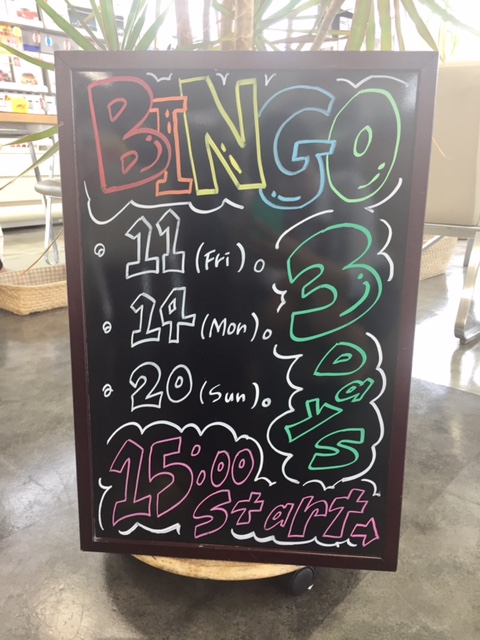 BINGO
11 (Fri).
14 (Mon).
20 (Sun).
3
Days
15:00
Start